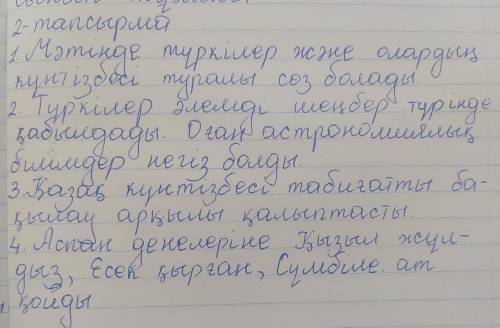 2-тапсырма
1. Мәтінде түркілер және олардың
күнтізбесі туралы сөз болады.
2. Түркілер әлемді шеңбер түрінде
қабылдады. Оған астрономиялық
білімдер негіз болды.
3. Қазақ күнтізбесі табиғатты ба-
қылау арқылы қалыптасты.
4. Аспан денелеріне Қызыл жұл-
дыз, Есек қырған, Сүмбіле ат
қойды